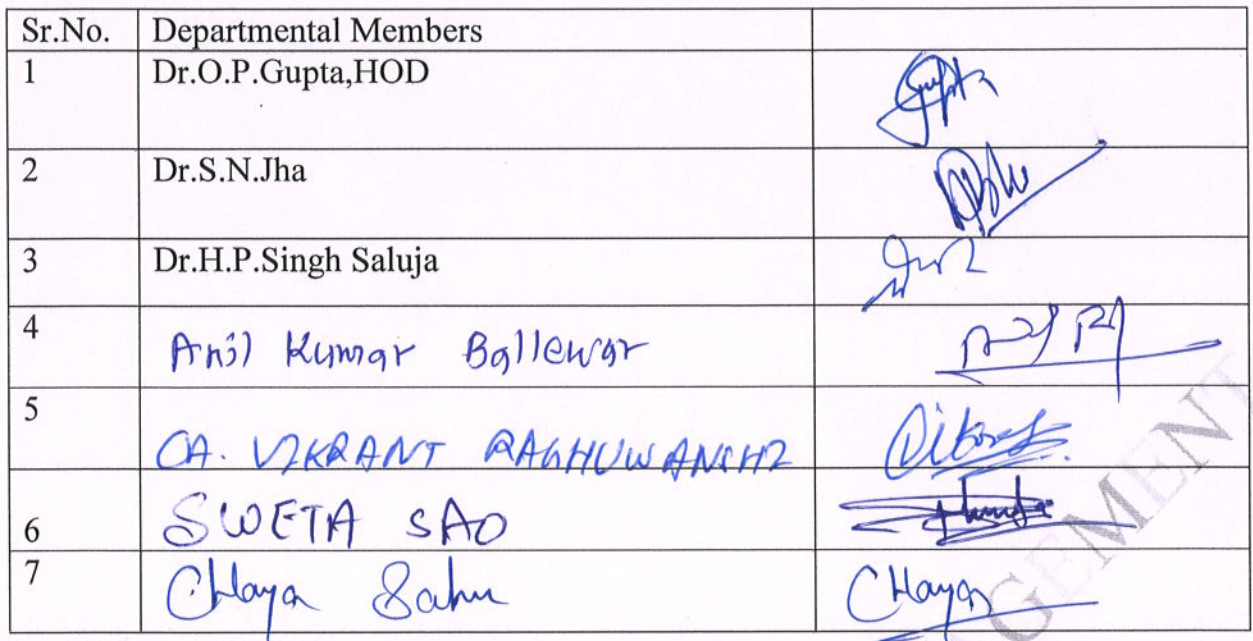 Sr.No. Departmental Members
1 Dr.O.P.Gupta,HOD Gupta
2 Dr.S.N.Jha
3 Dr.H.P.Singh Saluja
4 Anil Kumar Ballewar
5 CA. VIKRANT RAGHUWANSHI
6 SWETA SAO
7 Chhaya Sahu CHaya
GEMENT